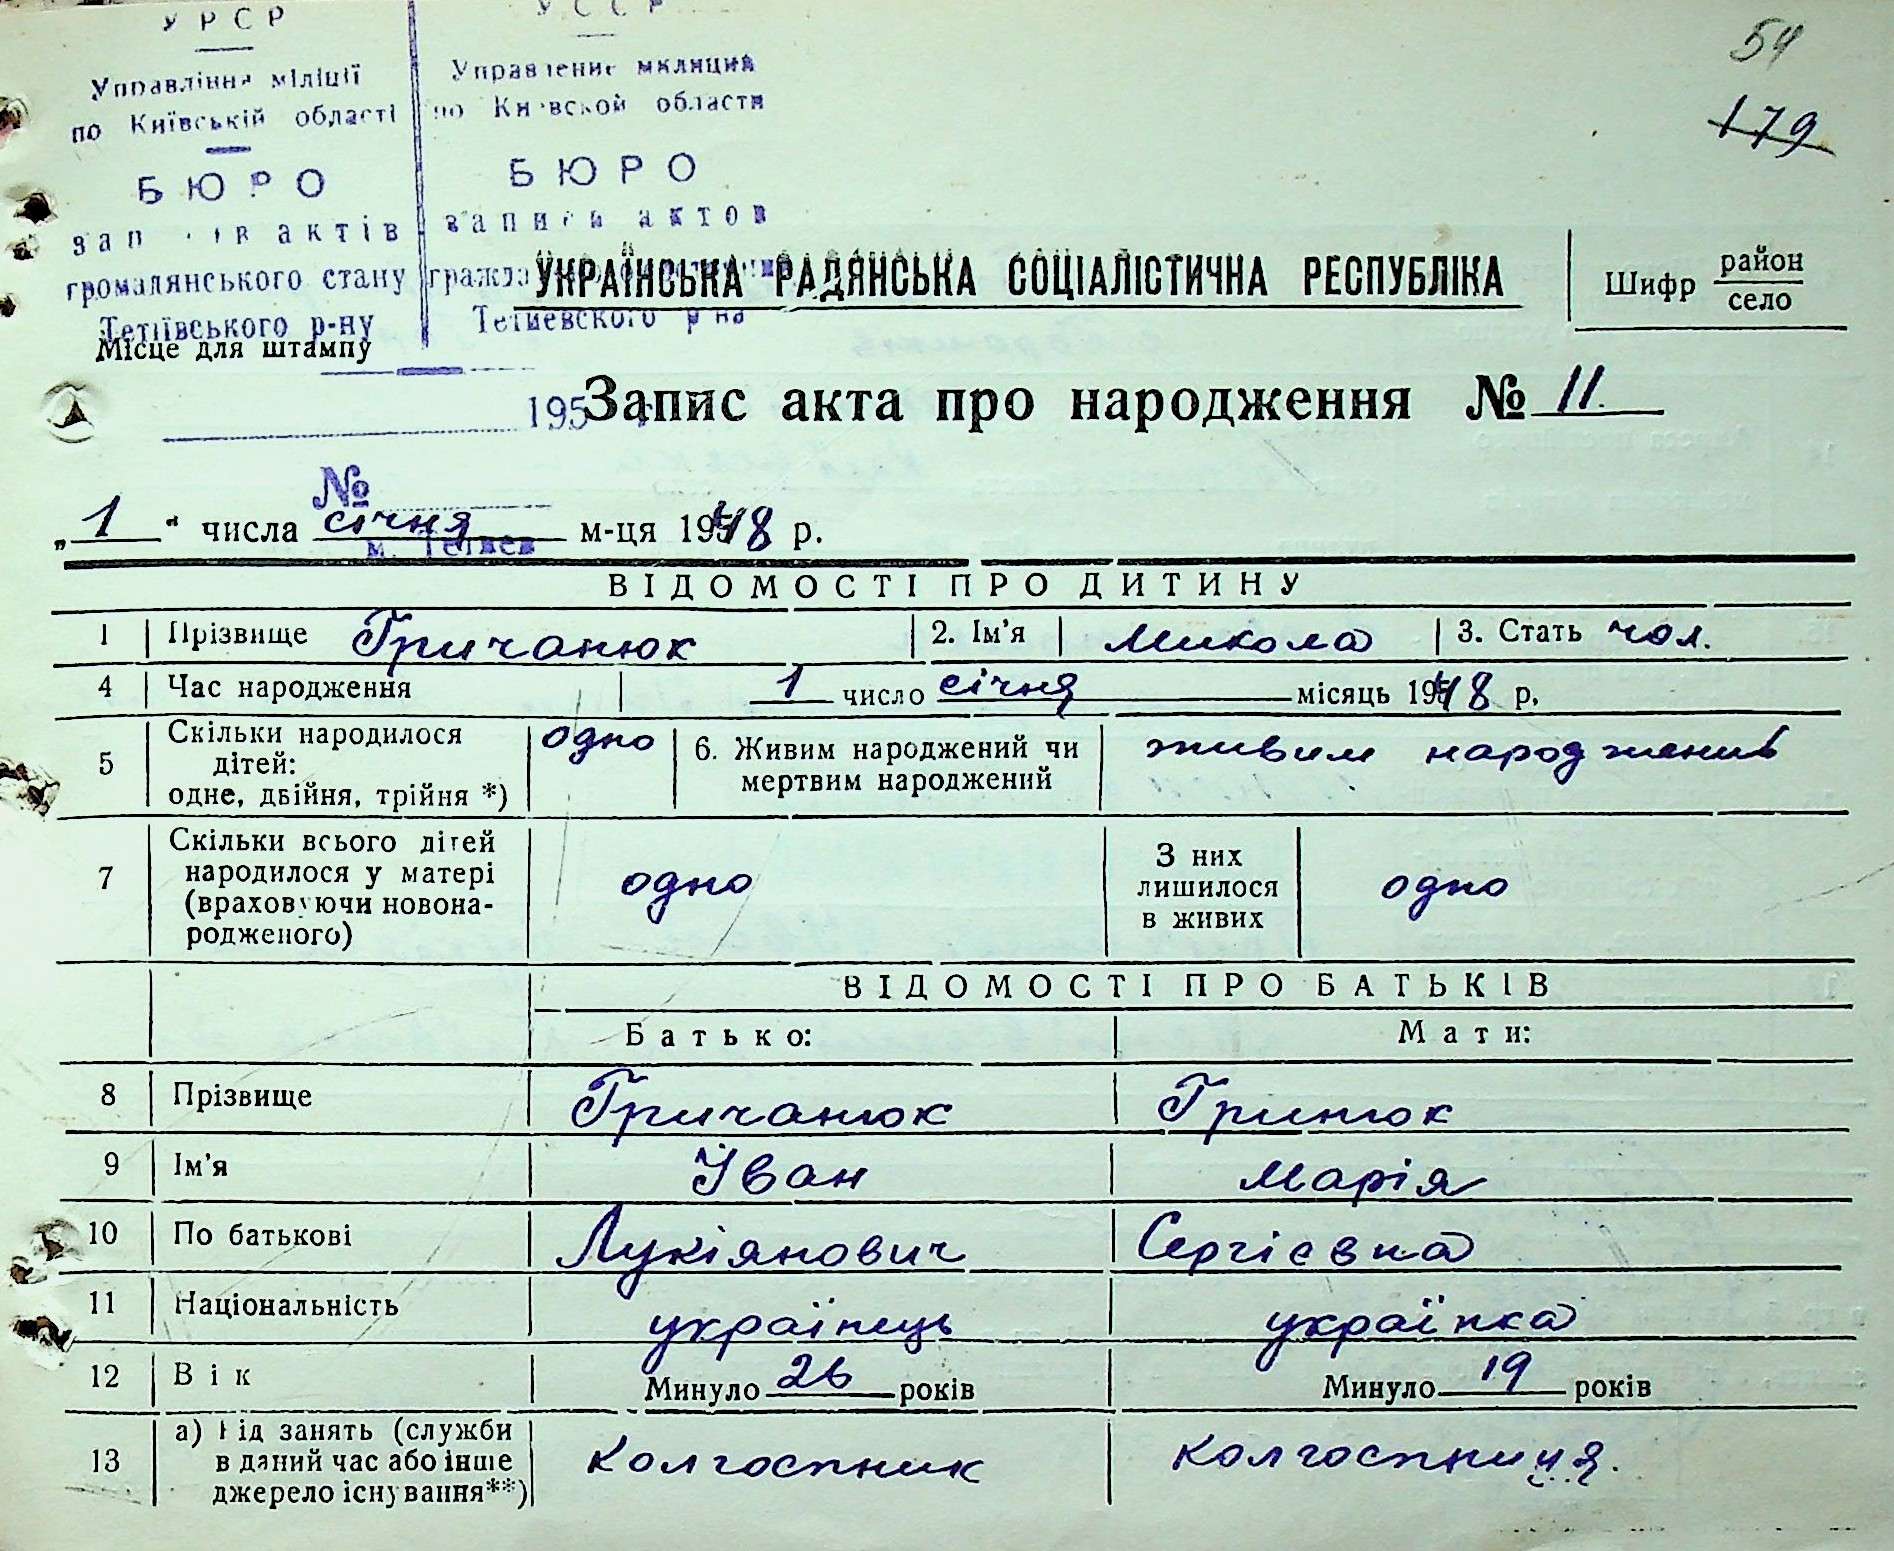 УРСР
Управління міліції
по Київській області
БЮРО
записів актів
громадянського стану
Тетіївського р-ну
УССР
Управление милиции
по Киевской области
БЮРО
записи актов
Тетиевского р-на
54
179
УКРАЇНСЬКА РАДЯНСЬКА СОЦІАЛІСТИЧНА РЕСПУБЛІКА
Шифр район
село
Місце для штампу
195
Запис акта про народження № 11.
№
м. Тетиев
„1" числа січня м-ця 1948 р.
ВІДОМОСТІ ПРО ДИТИНУ
1 Прізвище Гричанюк 2. Ім'я Микола 3. Стать чол.
4 Час народження 1 число січня місяць 1948 р.
5 Скільки народилося дітей: одне, двійня, трійня *) одно 6. Живим народжений чи мертвим народжений живим народжений
7 Скільки всього дітей народилося у матері (враховуючи новона-родженого) одно З них лишилося в живих одно
ВІДОМОСТІ ПРО БАТЬКІВ
Батько: Мати:
8 Прізвище Гричанюк Гринюк
9 Ім'я Іван Марія
10 По батькові Лукіянович Сергієвна
11 Національність українець українка
12 Вік Минуло 26 років Минуло 19 років
13 а) Рід занять (служби в даний час або інше джерело існування**) колгоспник колгоспниця.